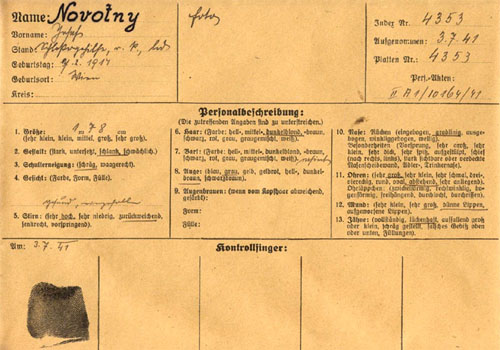 Name: Novotny
Vorname: Josef
Stand:
Geburtstag: 1917
Geburtsort: Wien
Kreis:
Index Nr. 4353
Aufgenommen: 3.7.41
Platten Nr.: 4353
Pers.-Akten:
II A1/10164/41
Personalbeschreibung:
(Die zutreffenden Angaben sind zu unterstreichen.)
1. Größe: 1 m 78 cm
(sehr klein, klein, mittel, groß, sehr groß).
2. Gestalt: (stark, untersetzt, schlank, schwächlich.)
3. Schulterneigung: (schräg, waagerecht).
4. Gesicht: (Farbe, Form, Fülle).
gesund,
5. Stirn: (sehr hoch, sehr niedrig, zurückweichend,
senkrecht, vorspringend).
6. Haar: (Farbe: hell-, mittel-, dunkelblond, -braun,
schwarz, rot, grau, graugemischt, weiß).
7. Bart: (Farbe: hell-, mittel-, dunkelblond, -braun,
schwarz, rot, grau, graugemischt, weiß).
8. Auge: (blau, grau, gelb, hell-, dunkel-
braun, schwarzbraun).
9. Augenbrauen: (wenn vom Kopfhaar abweichend,
gesucht):
Form:
Fülle:
10. Nase: Rücken (eingebogen, gradlinig, ausge-
bogen, winkliggebogen, wellig).
Besonderheiten (Vorsprung, sehr groß, sehr
klein, sehr dick, sehr spitz, aufgestülpt, schief
(nach rechts, links), stark sichtbare oder verdeckte
Nasenscheidewand, Adler-, Trinkernase).
11. Ohren: (sehr groß, sehr klein, sehr schmal, drei-
eckig, rund, oval, abstehend, sehr anliegend).
12. Mund: (sehr klein, sehr groß, dünne Lippen,
aufgeworfene Lippen).
13. Zähne: (vollständig, lückenhaft, auffallend groß
oder klein, schräg gestellt, falsches Gebiß oben
oder unten, Füllungen).
Am: 3.7.41
Kontrollfinger: